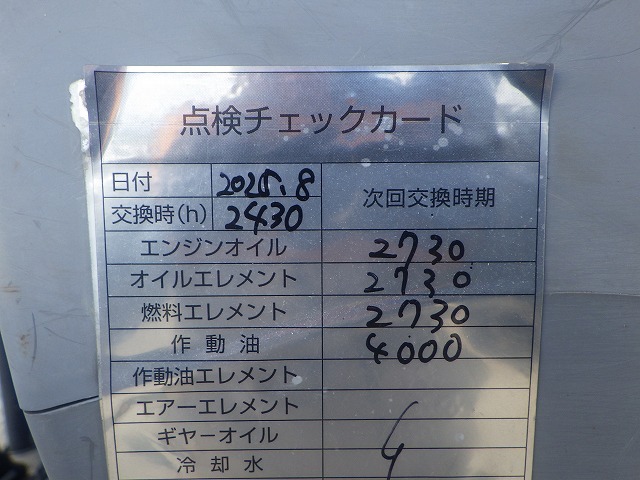 点検チェックカード
日付 2025.8 次回交換時期
交換時(h) 2430
エンジンオイル 2730
オイルエレメント 2730
燃料エレメント 2730
作動油 4000
作動油エレメント
エアーエレメント
ギヤーオイル
冷却水